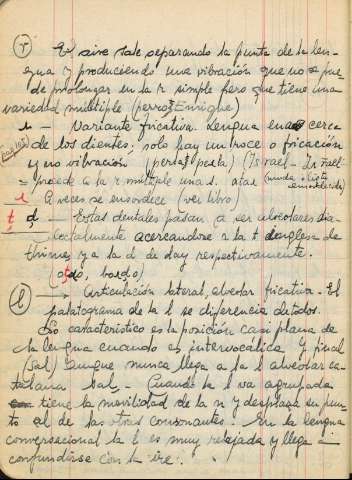 (r) El aire sale separando la punta de la len-
gua y produciendo una vibración que no se pue-
de prolongar en la r simple pero que tiene una
variedad múltiple (perro, Enrique)
ɹ — Variante fricativa. Lengua cerca
de los dientes; solo hay un roce o fricación
y no vibración (perla) (Israel -
precede a la r múltiple una s.
A veces se ensordece (ver libro)
t d — Estas dentales pasan a ser alveolares dia-
lectalmente acercandose a la t inglesa de
y a la d de day respectivamente.
(l) → Articulación lateral, alveolar fricativa. El
palatograma de la l se diferencia de todos.
Lo característico es la posición casi plana de
la lengua cuando es intervocálica y final
(sal) aunque nunca llega a la l alveolar ca-
talana sal. Cuando la l va agrupada
tiene la movilidad de la n y desplaza su pun-
to al de las otras consonantes. En la lengua
conversacional la l es muy relajada y llega a
confundirse con la ere.